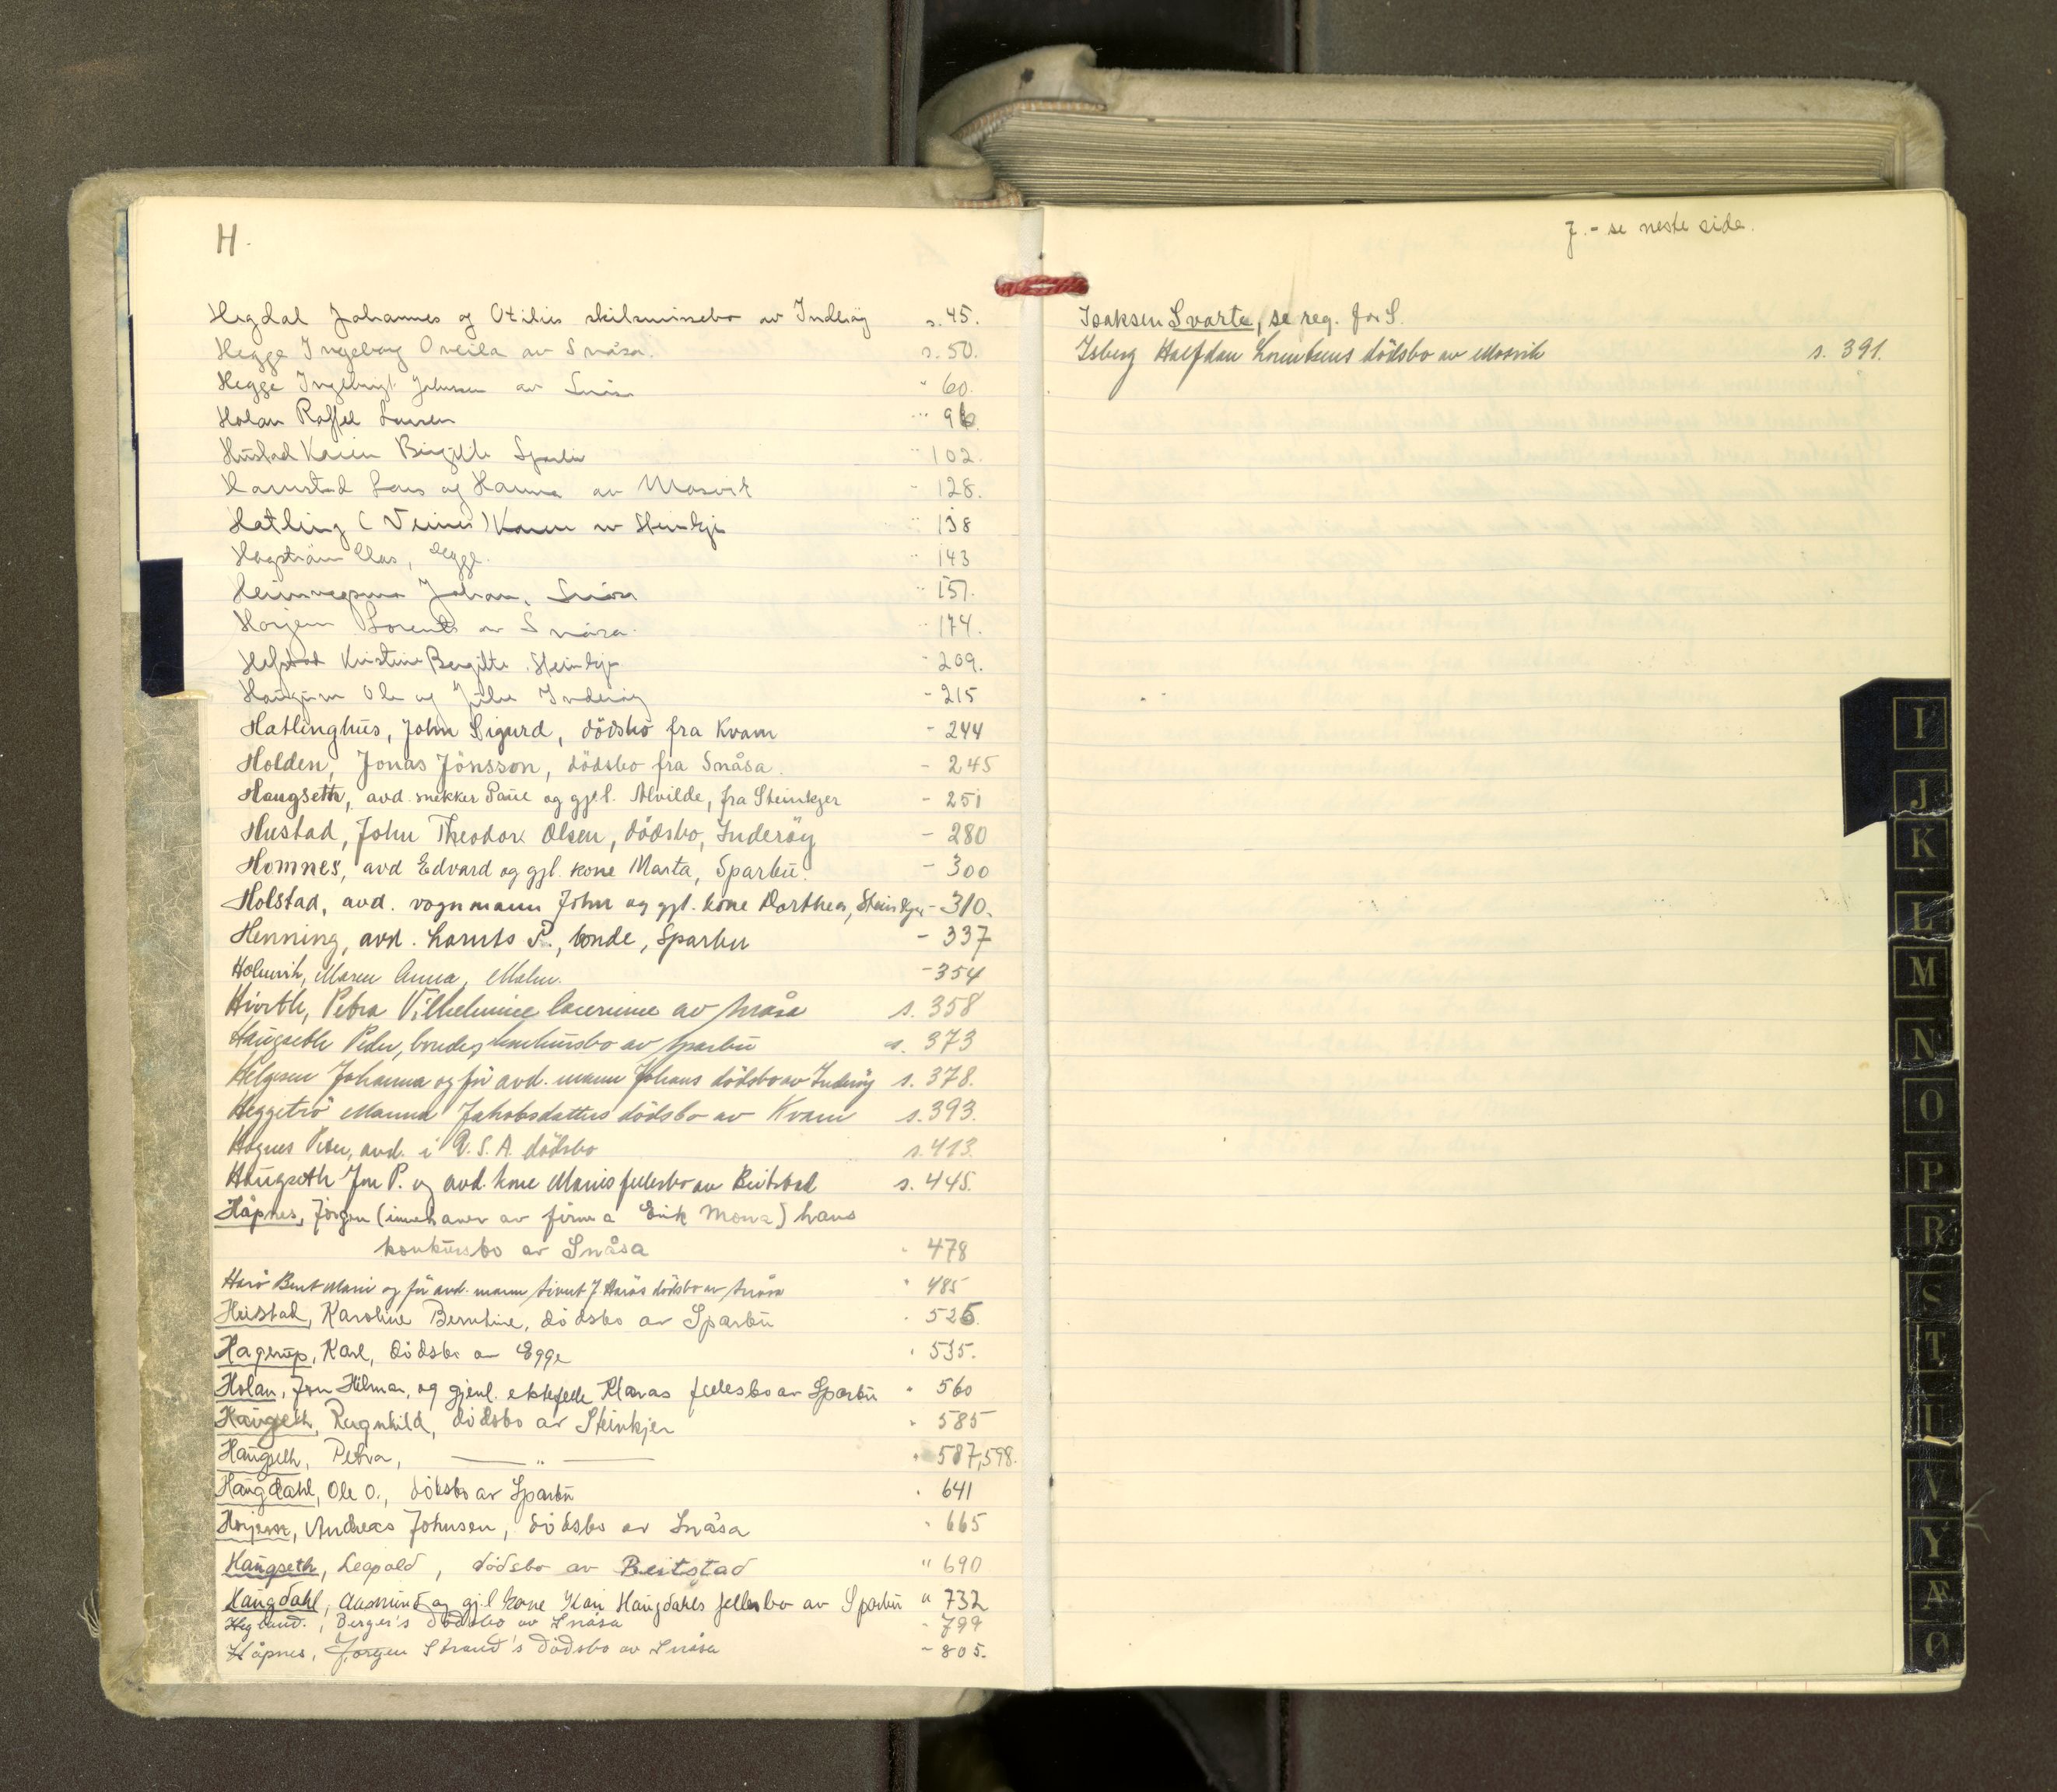 H.
Hegdal Johannes og Otilies skilsmissebo av Inderöy s. 45.
Hegge Ingeborg Oneila av Snåsa. s. 50.
Hegge Ingebrigt Johnsen av Snåsa " 60.
Holan Raffel Larsen " 96
Hustad Karen Birgitte Sparbu " 102.
Hamstad Lars og Hanna av Mosvik - 128.
Hatling (Veines) Karen av Steinkjer " 138
Hagström Clas, Egge. " 143
Heimvegsmo Johan, Snåsa " 157.
Horjem Lorents av Snåsa. " 174.
Helstad Kristine Bergitte, Steinkjer - 209.
Haugum Ole og Julie Inderöy - 215
Hatlinghus, John Sigurd, dödsbo fra Kvam - 244
Holden, Jonas Jönsson, dödsbo fra Snåsa. - 245
Haugseth, avd. snekker Paul og gjel. Alvilde, fra Steinkjer - 251
Hustad, John Theodor Olsen, dödsbo, Inderöy - 280
Homnes, avd Edvard og gjl. kone Marta, Sparbu. - 300
Holstad, avd. vognmann John og gjl. kone Dorthea, Steinkjer - 310.
Henning, avd. Lorents P., bonde, Sparbu - 337
Holmvik, Maren Anna, Malm. - 354
Hivrth, Petra Vilhelmine av Snåsa s. 358
Haugseth Peder, bonde, konkursbo av Sparbu s. 373
Helgesen Johanna og før avd. mann Johans dödsbo av Inderöy s. 378.
Heggetrö Manna Jakobsdatters dödsbo av Kvam s. 393.
Hognes Peter, avd. i U.S.A. dödsbo s. 413.
Haugseth Jon P. og avd. kone Maries fellesbo av Beitstad s. 445.
Håpnes, Jörgen (innehaver av firma Erik Mona) hans
konkursbo av Snåsa " 478
Harö Berit Marie og før avd. mann Sivert J. Harös dödsbo av Snåsa " 485
Heistad, Karoline Berntine, dödsbo av Sparbu " 525.
Hagerup, Karl, dödsbo av Egge " 535.
Holan, Jon Hilmar, og gjenl. ektefelle Klaras fellesbo av Sparbu " 560
Haugseth, Ragnhild, dödsbo av Steinkjer " 585
Haugseth, Petra, — " — " 587, 598.
Haugdahl, Ole O., dödsbo av Sparbu " 641
Horjem, Andreas Johnsen, dödsbo av Snåsa " 665
Haugseth, Leopold, dödsbo av Beitstad " 690
Haugdahl, Aasmund og gjl. kone Kari Haugdahls fellesbo av Sparbu " 732
Hegland, Berger's dödsbo av Snåsa - 799
Håpnes, Jörgen Strand's dödsbo av Snåsa - 805.
J. - se neste side.
Isaksen Svarte, se reg. for S.
Isberg Halfdan Lorentsens dödsbo av Mosvik s. 391.
I
J
K
L
M
N
O
P
R
S
T
U
V
Y
Æ
Ø